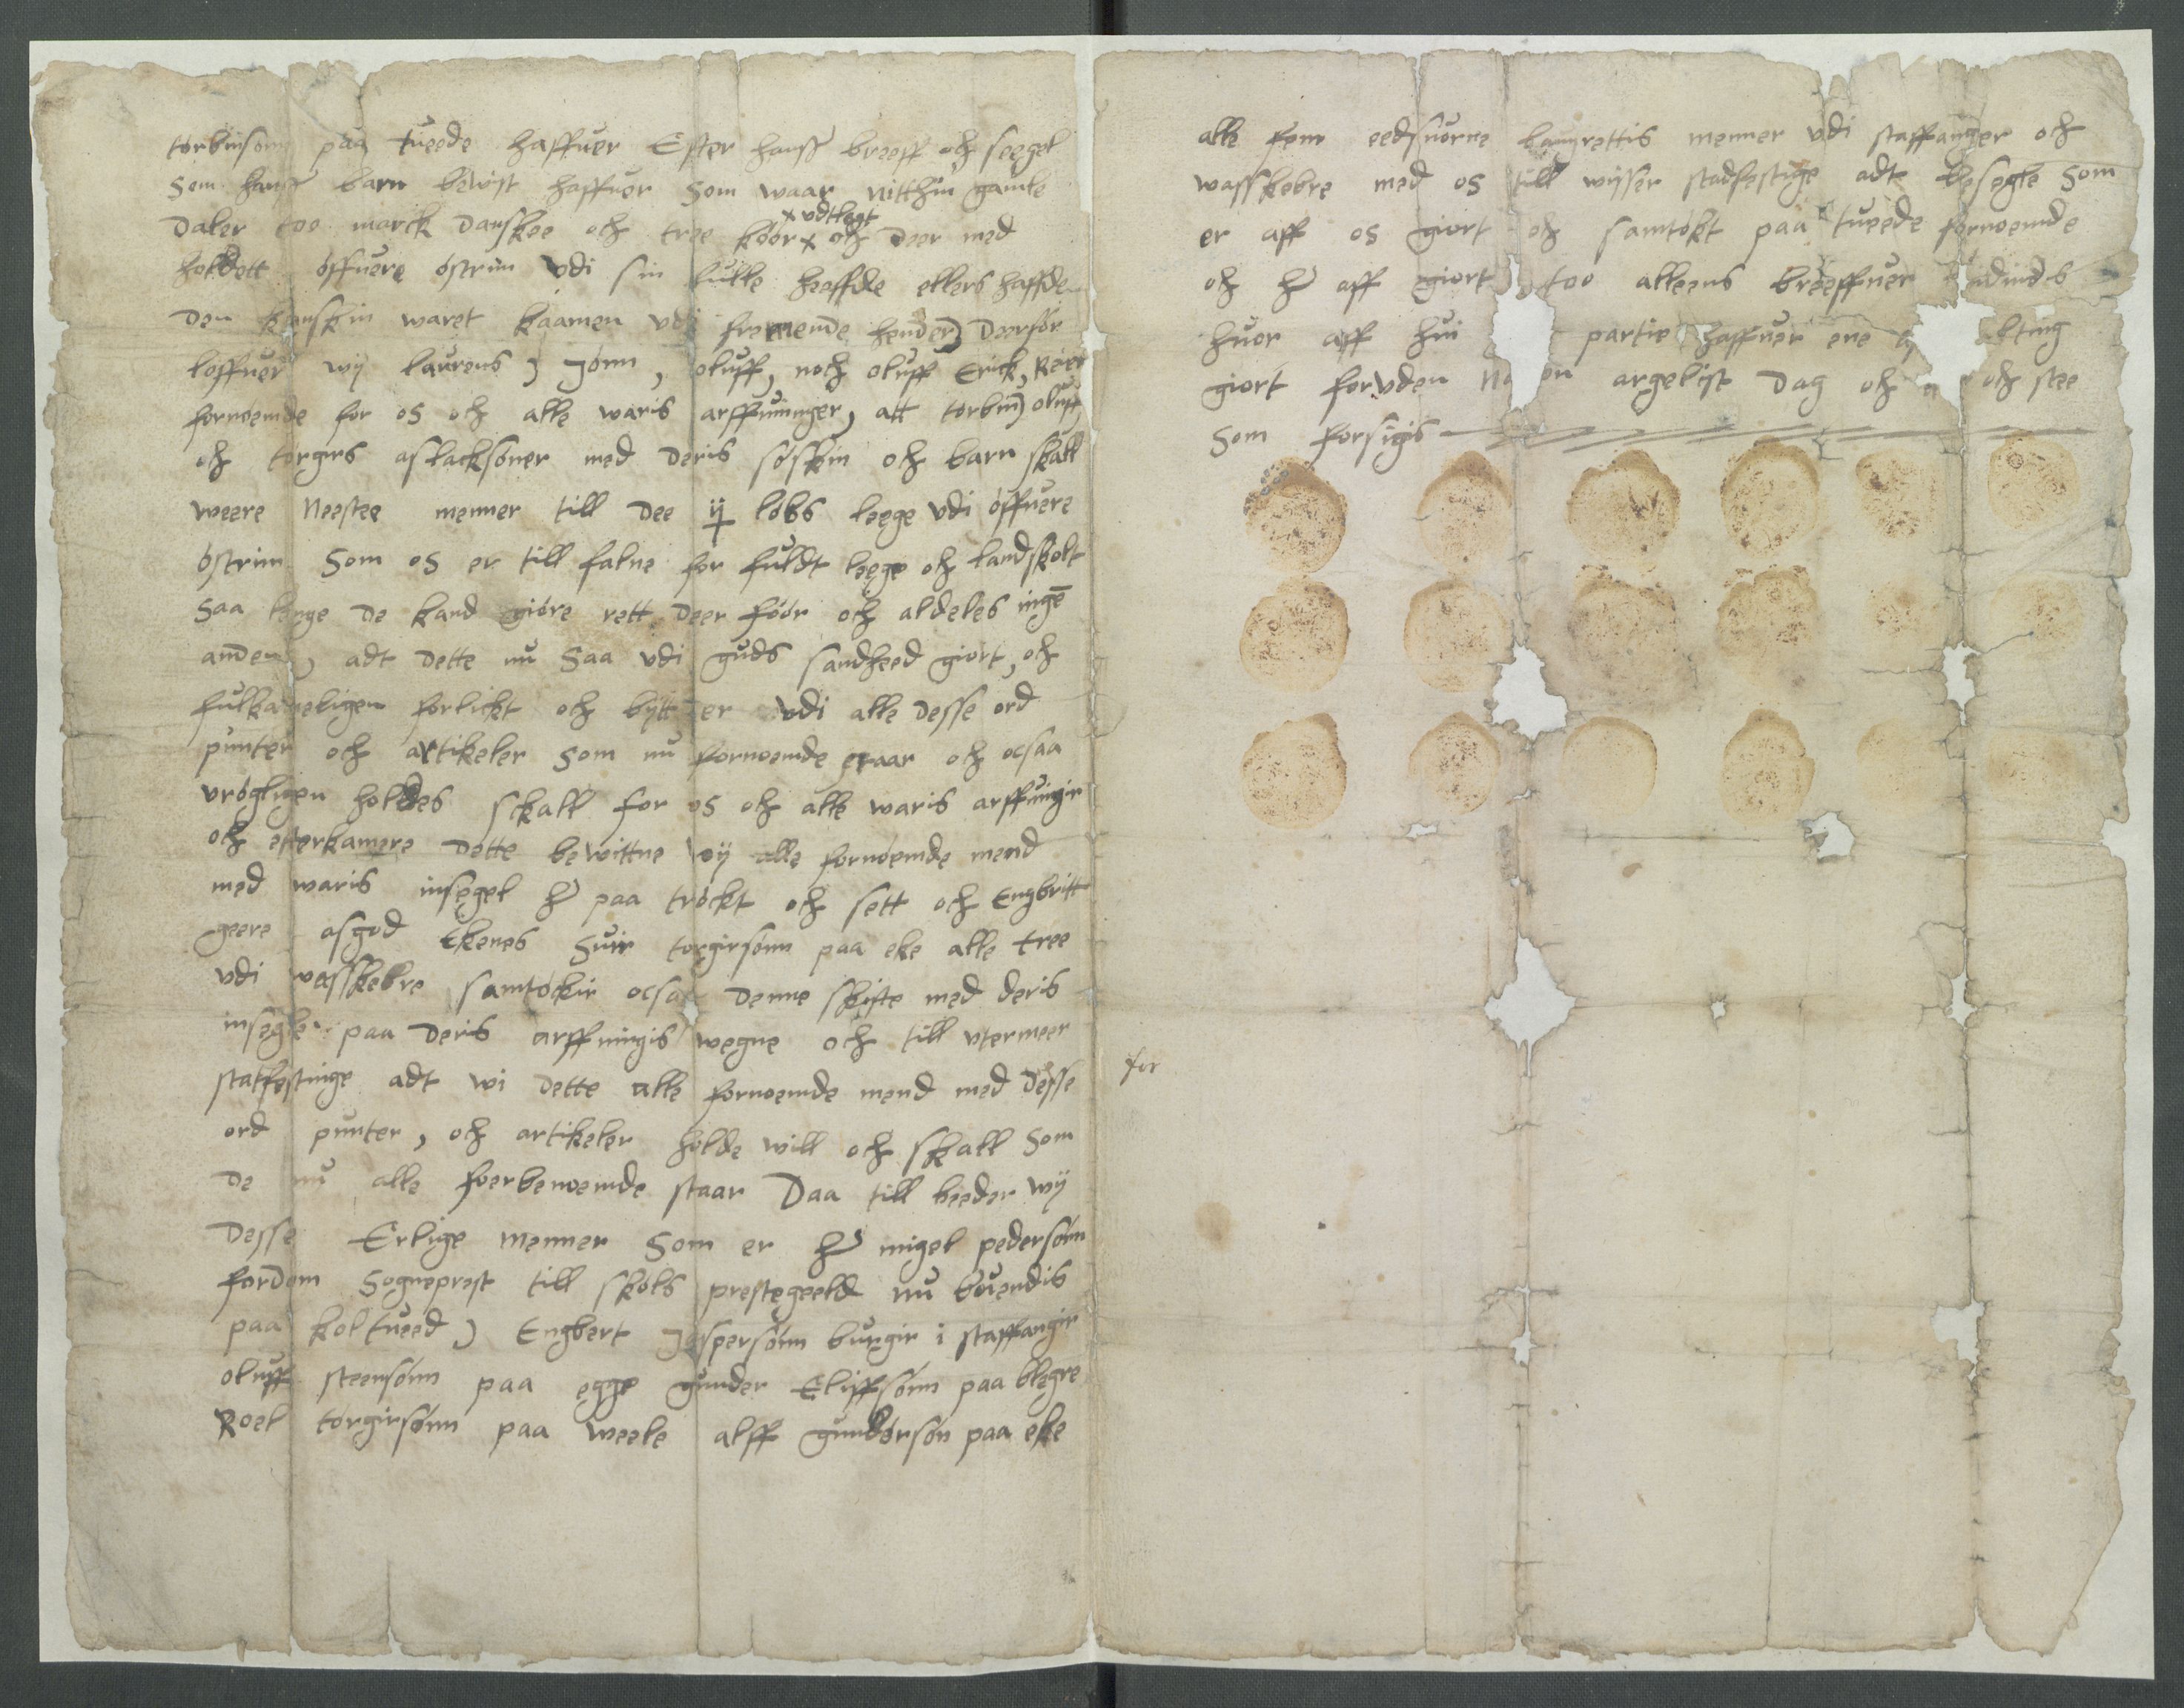 torbinsonn paa tueede haffuer Efter hanss breeff och seegel
Som hanss barn bewist haffuer Som waar nitthin gamle
daler too marck danskee och tree köör x och deer med
x vdtlagt
holdett öffuere östrim vdi sin fulle heeffde ellers haffde
den kanskin waret kaamen vdi fremende hender) deerför
löffuer wij laurens) Jönn, oluff, noch oluff Erick, Reier
fornoemde for os och alle waris arffuinger, att torbin) oluff
och torgirs aslacksöner med deris söskin och barn skall
weere Neestee menner till dee ij löbs leege vdi öffuere
östrim Som os er till falne for fuldt leege och landskolt
Saa lenge de kand giöre rett deer föör och aldeles ingē
anden, adt dette nu Saa vdi guds sandheed giort, och
fulkameligen forlickt och bytt er vdi alle desse ord
punter och artikeler Som nu fornoemde staar och ocsaa
vrögligen holdes sckall for os och alle waris arffuingir
och efterkamere dette bewittne wij alle fornoemde mend
med waris insegel her paa tröckt och sett och Engbritt
geere asgod Ekenes Suir torgirsönn paa eke alle tree
vdi wasskebre samtöckir ocsaa denne skifte med deris
insegler paa deris arffuingis wegne och till vtermeer
statfestinge adt wi dette alle fornoemde mend med desse
ord punter, och artikeler holde will och skall Som
de nu alle foerbenoemde staar Daa till beeder wij
desse Erlige menner Som er her migel pedersönn
fordom Sogneprest till skölds prestegeeld nu bouendis
paa koltueed) Engbert Jespersönn burgir i staffangir
oluff steensönn paa egge gunder Eliffsönn paa blegre
Roel torgirsönn paa weele alff gundersön paa eke
alle fem eedsuorne laugrettis menner vdi staffanger och
wasskebre med os till wysser stadfestige adt besegle Som
er aff os giort och samtökt paa tueede fornoemde
och her aff giort too alleens breeffuer
huor aff partie haffuer ene
giort foruden argelist Dag och och stee
Som forsigis
for